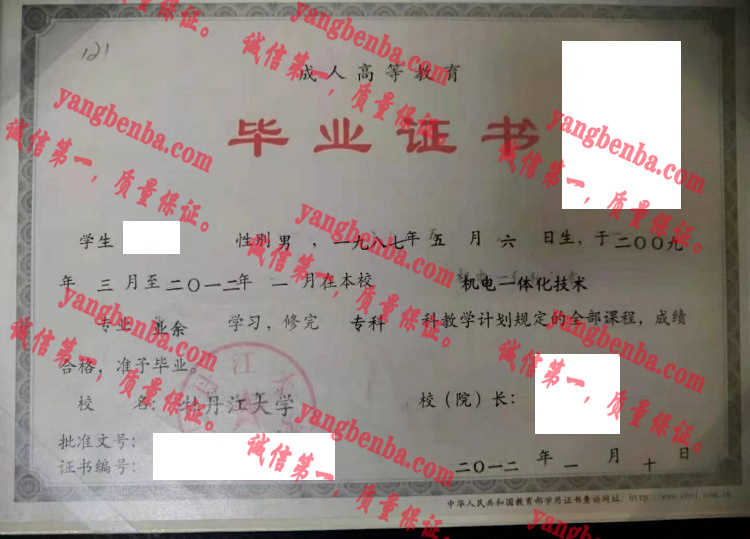 121
成人高等教育
毕业证书
学生 性别 男 ，一九八七年 五 月 六 日生，于 二〇〇九
年 三 月至 二〇一二年 一 月在本校 机电一体化技术
专业 业余 学习，修完 专科 科教学计划规定的全部课程，成绩
合格，准予毕业。
校 名： 牡丹江大学
校（院）长：
批准文号：
证书编号：
二〇一二 年 一 月 十 日
中华人民共和国教育部学历证书查询网址 http://www.chsi.com.cn
yangbenba.com
诚信第一，质量保证。
yangbenba.com
诚信第一，质量保证。
yangbenba.com
诚信第一，质量保证。
yangbenba.com
诚信第一，质量保证。
yangbenba.com
诚信第一，质量保证。
yangbenba.com
诚信第一，质量保证。
yangbenba.com
诚信第一，质量保证。
yangbenba.com
yangbenba.com